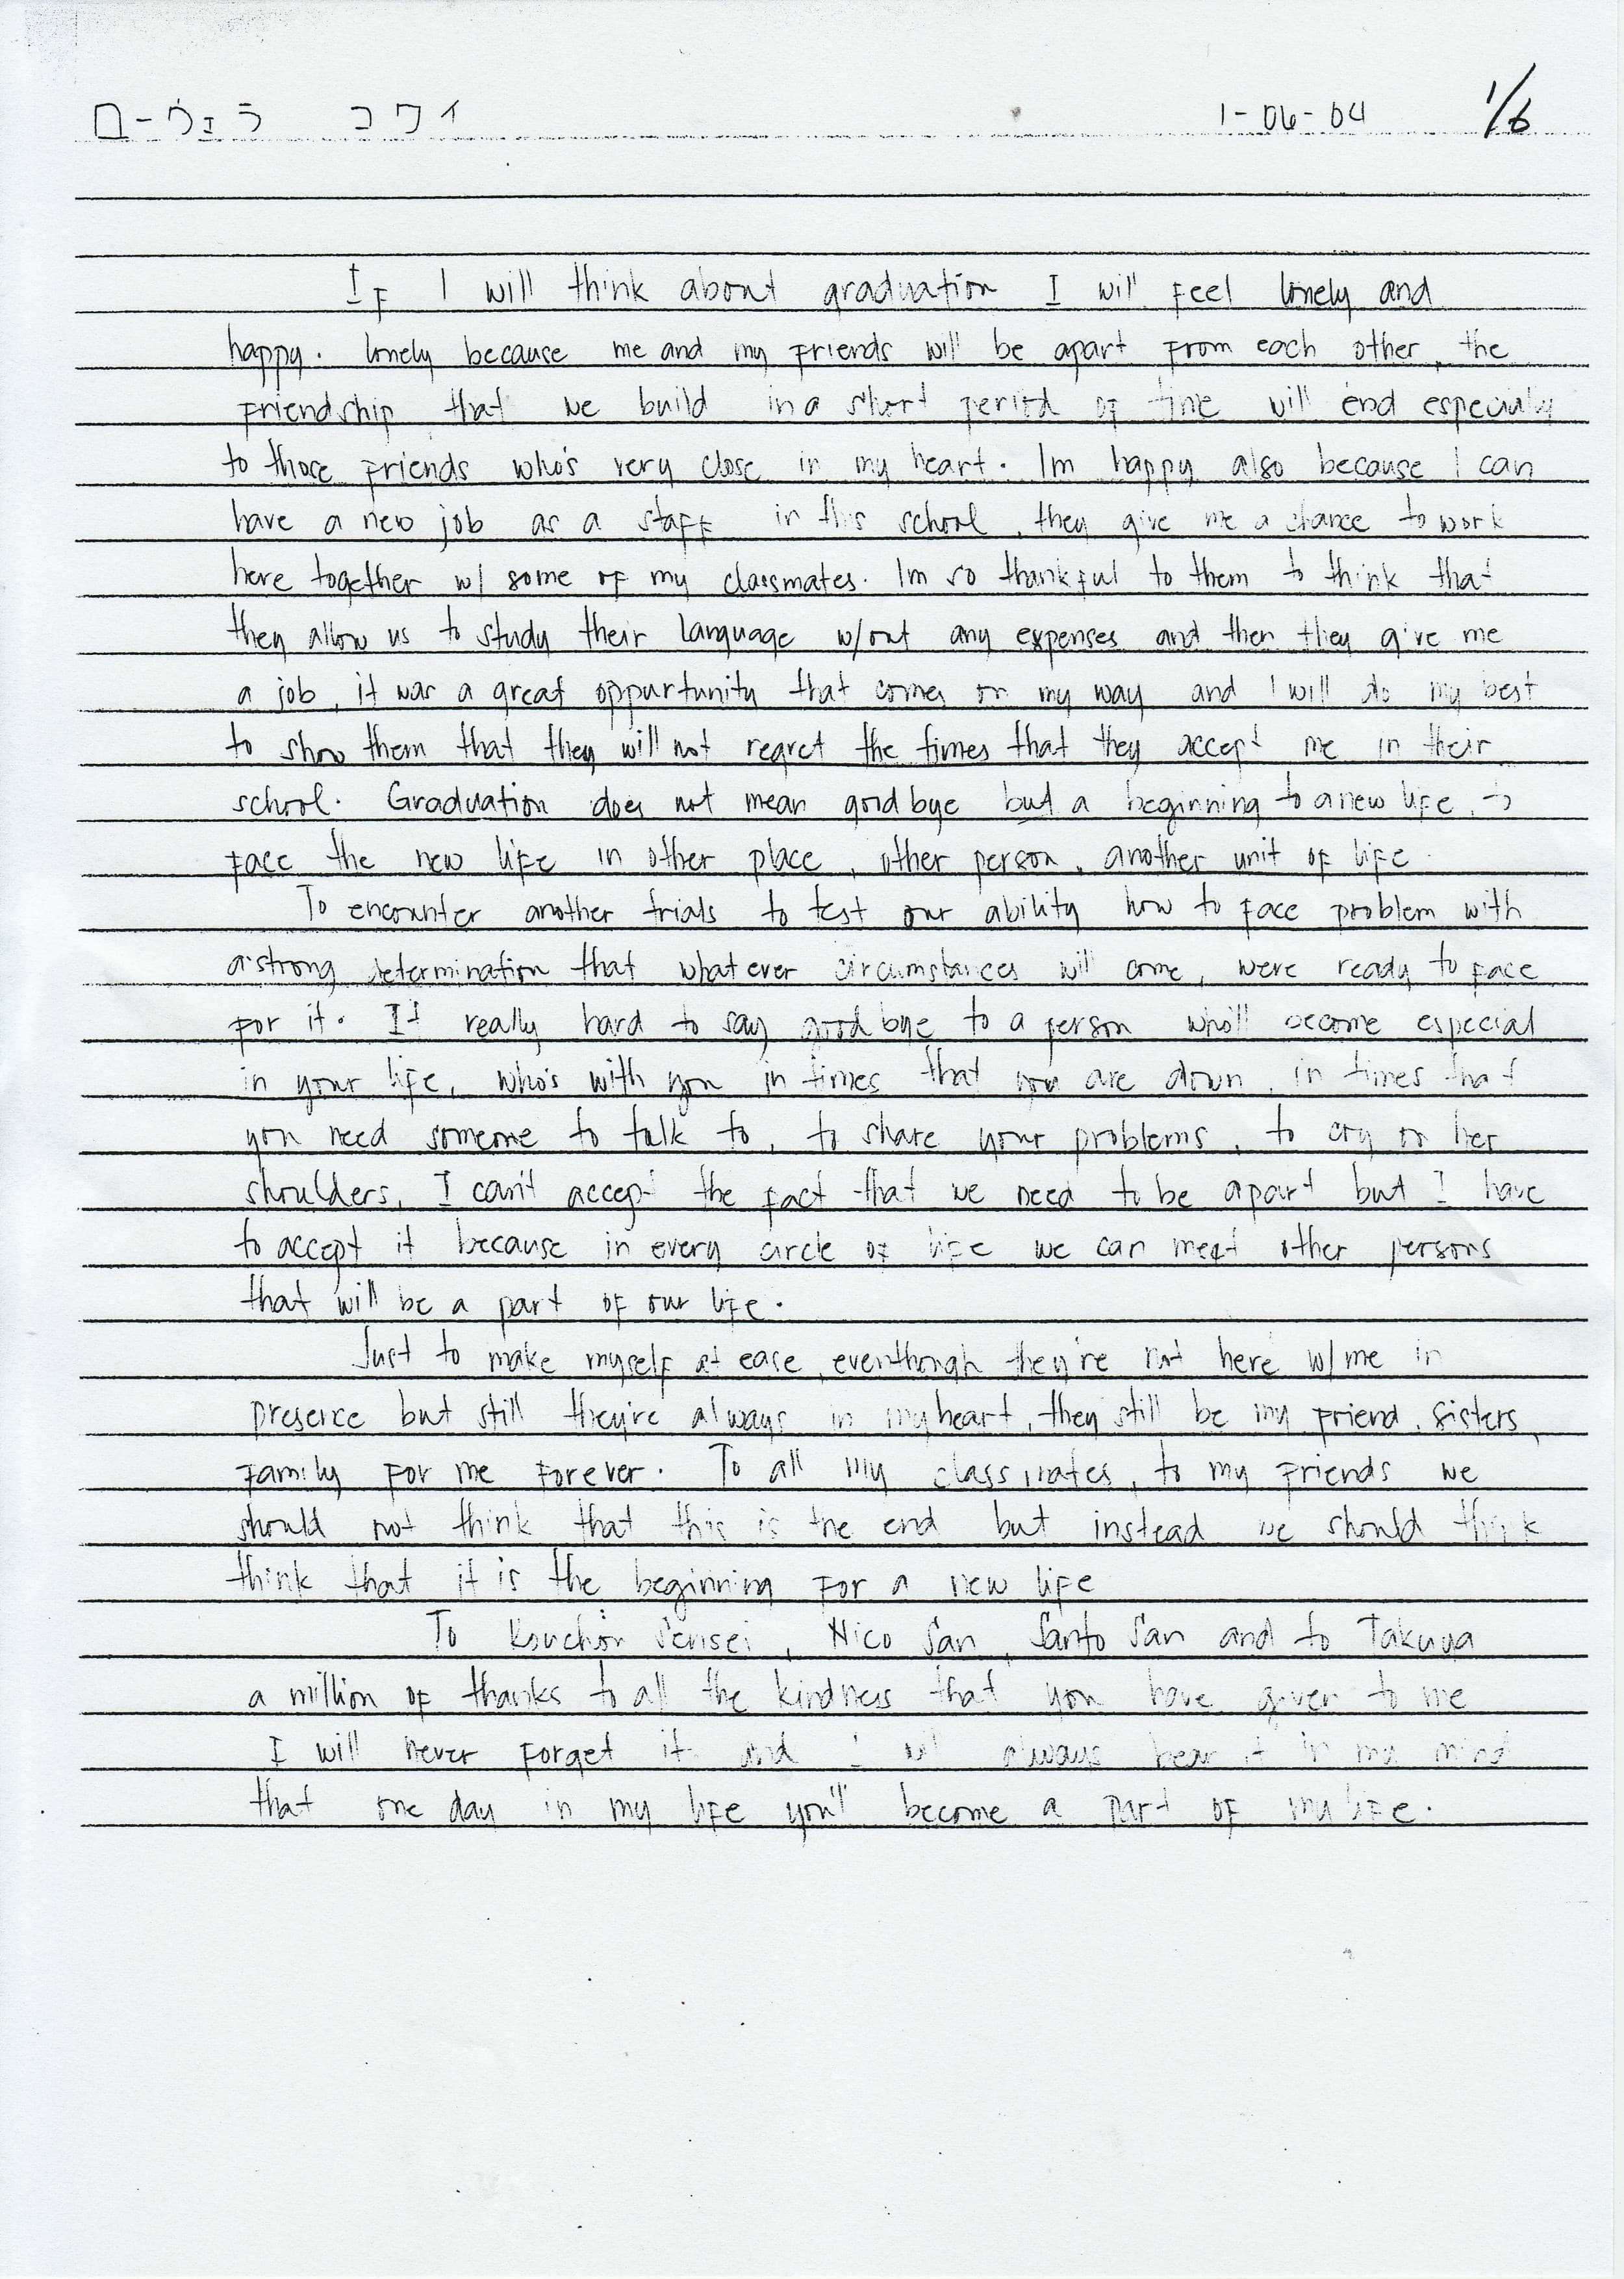 ローヴェラ コワイ 1-06-04 1/6
If I will think about graduation I will feel lonely and
happy. lonely because me and my friends will be apart from each other, the
friendship that we build in a short period of time will end especially
to those friends who's very close in my heart. Im happy also because I can
have a new job as a staff in this school, they give me a chance to work
here together w/ some of my classmates. Im so thankful to them to think that
they allow us to study their language w/out any expenses and then they give me
a job, it was a great oppurtunity that comes on my way and I will do my best
to show them that they will not regret the times that they accept me in their
school. Graduation does not mean goodbye but a beginning to a new life, to
face the new life in other place, other person, another unit of life.
To encounter another trials to test our ability how to face problem with
a strong determination that what ever circumstances will come, were ready to face
for it. It really hard to say good bye to a person who'll become especial
in your life, who's with you in times that you are down, in times that
you need someone to talk to, to share your problems, to cry on her
shoulders, I can't accept the fact that we need to be apart but I have
to accept it because in every circle of life we can meet other persons
that will be a part of our life.
Just to make myself at ease, eventhough they're not here w/me in
presence but still they're always in my heart, they still be my friend, sisters,
family for me forever. To all my classmates, to my friends we
should not think that this is the end but instead we should think
think that it is the beginning for a new life
To Kouchou Sensei, Nico San, Santo San and to Takuya
a million of thanks to all the kindness that you have given to me
I will never forget it and I will always bear it in my mind
that one day in my life you'll become a part of my life.